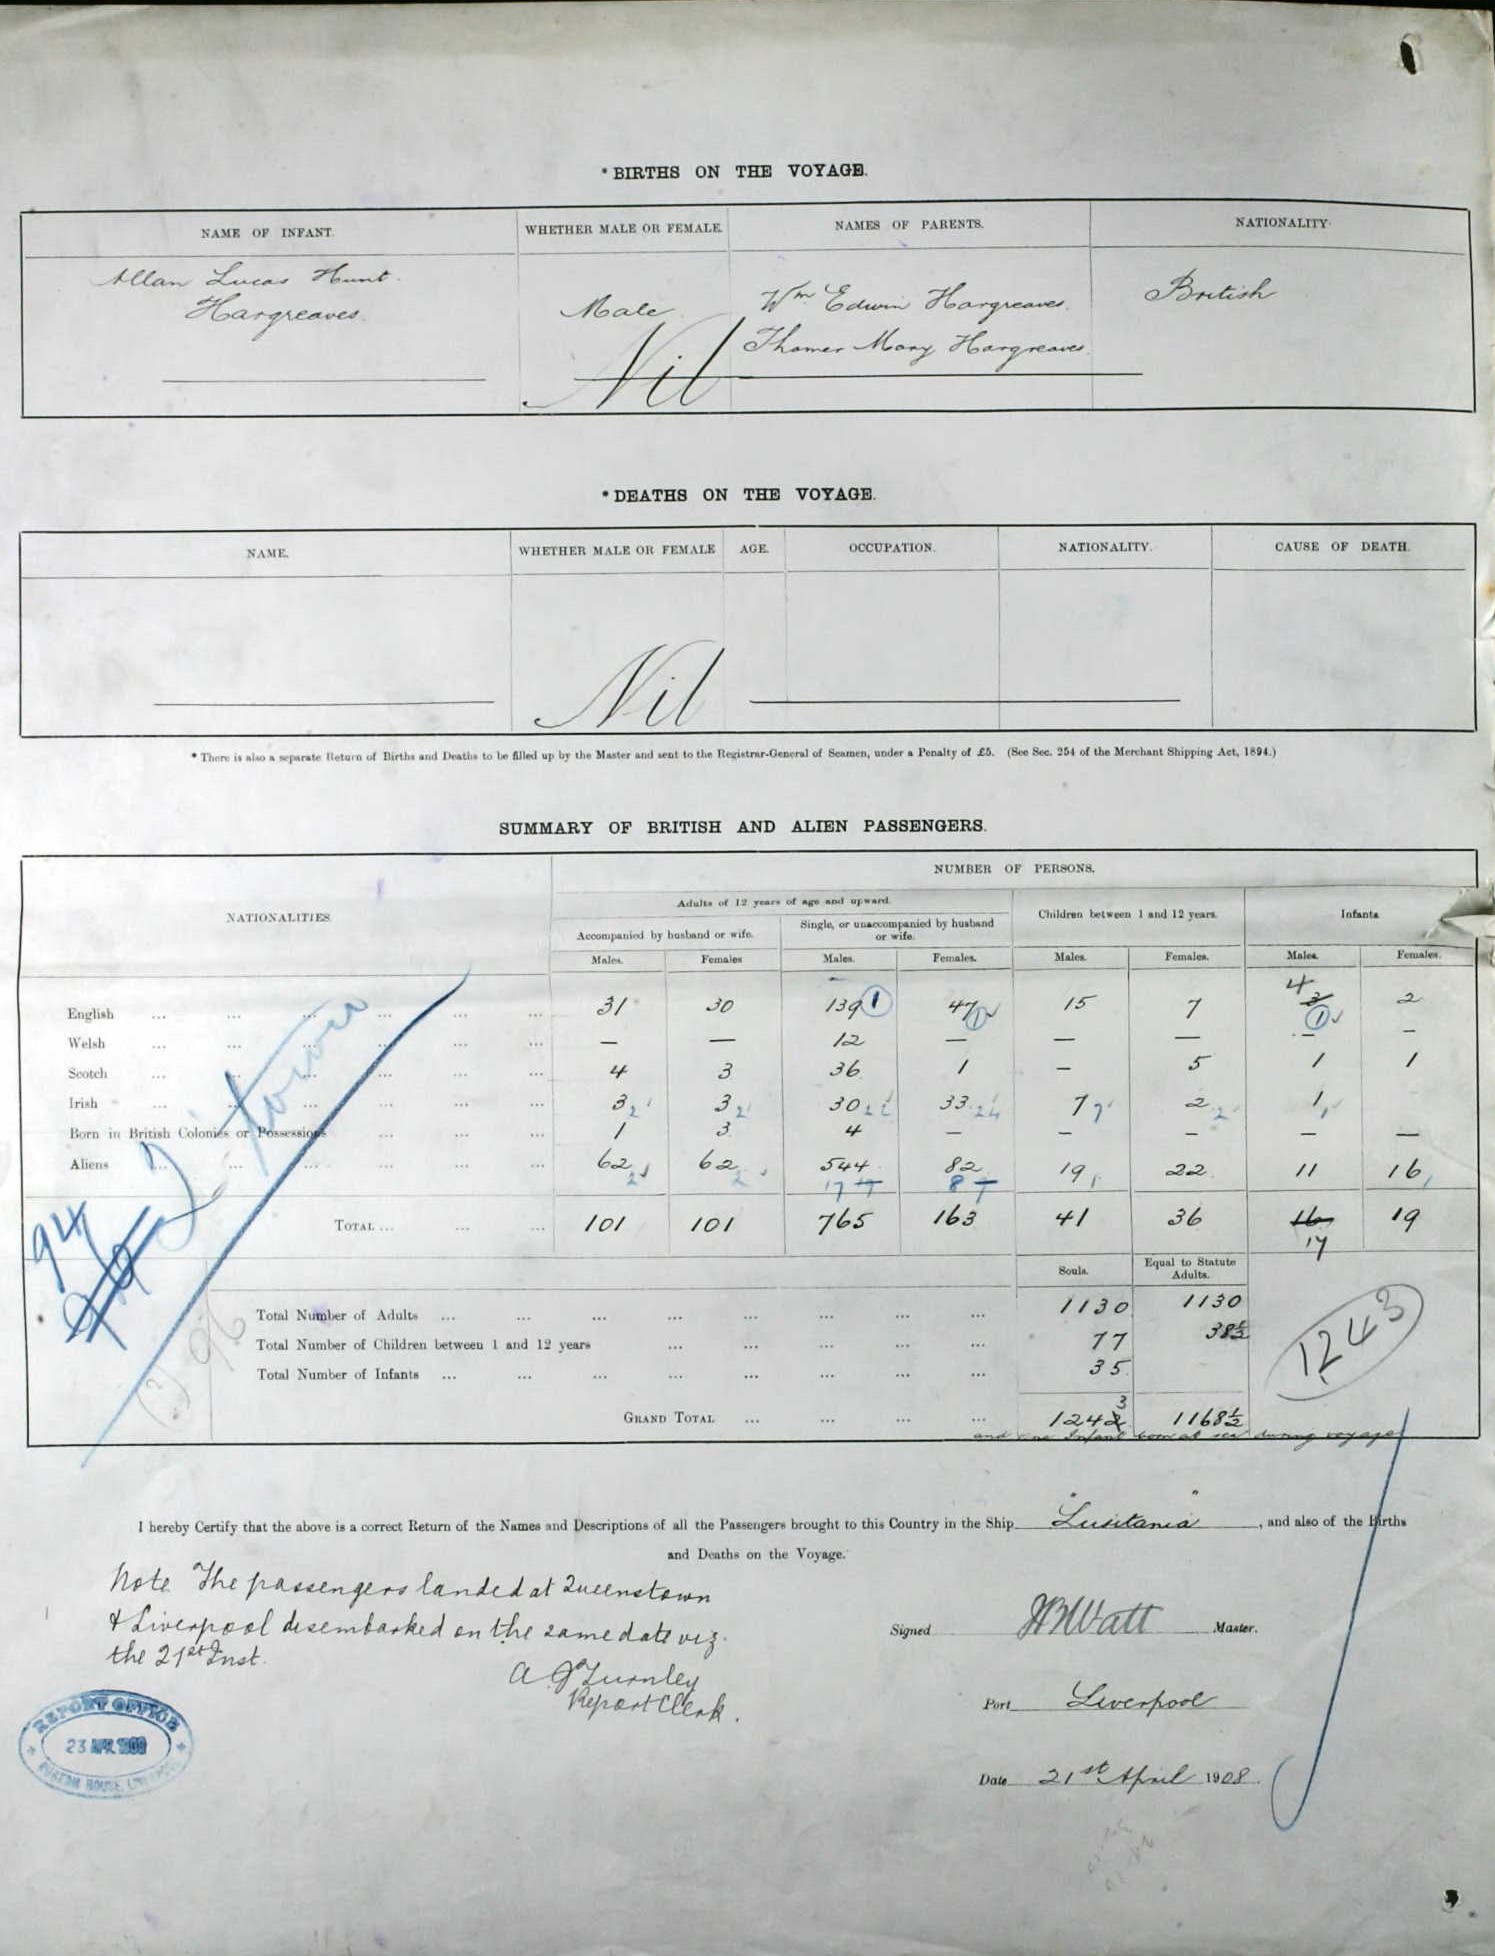 * BIRTHS ON THE VOYAGE.
NAME OF INFANT. WHETHER MALE OR FEMALE. NAMES OF PARENTS. NATIONALITY.
Allan Lucas Hunt
Hargreaves. Male Wm Edwin Hargreaves. British
Mary Hargreaves
Nil
* DEATHS ON THE VOYAGE.
NAME. WHETHER MALE OR FEMALE AGE. OCCUPATION. NATIONALITY. CAUSE OF DEATH.
Nil
* There is also a separate Return of Births and Deaths to be filled up by the Master and sent to the Registrar-General of Seamen, under a Penalty of £5. (See Sec. 254 of the Merchant Shipping Act, 1894.)
SUMMARY OF BRITISH AND ALIEN PASSENGERS.
NATIONALITIES. NUMBER OF PERSONS.
Adults of 12 years of age and upward. Children between 1 and 12 years. Infants
Accompanied by husband or wife. Single, or unaccompanied by husband or wife.
Males. Females Males. Females. Males. Females. Males. Females.
4
English ... ... ... ... ... ... 31 30 139 1 47 1 15 7 3 1 2
Welsh ... ... ... ... ... ... — — 12 — — — — —
Scotch ... ... ... ... ... ... 4 3 36 1 — 5 1 1
Irish ... ... ... ... ... ... 3 2 3 2 30 22 33 24 7 7 2 2 1 1
Born in British Colonies or Possessions ... ... ... 1 3 4 — — — — —
Aliens ... ... ... ... ... ... 62 2 62 2 544 82 19 1 22 11 16 1
17 17 8 7
TOTAL ... ... ... 101 101 765 163 41 36 16 19
17
94
Q'town
Souls. Equal to Statute Adults.
Total Number of Adults ... ... ... ... ... ... ... ... 1130 1130
Total Number of Children between 1 and 12 years ... ... ... ... ... 77 38½
Total Number of Infants ... ... ... ... ... ... ... ... 35
96
1243
3
GRAND TOTAL ... ... ... ... 1242 1168½
and one Infant born at sea during voyage
I hereby Certify that the above is a correct Return of the Names and Descriptions of all the Passengers brought to this Country in the Ship "Lusitania", and also of the Births
and Deaths on the Voyage.
Note The passengers landed at Queenstown
& Liverpool disembarked on the same date viz.
the 21st Inst.
A. J. Turnley
Report Clerk.
Signed JB Watt Master.
Port Liverpool
Date 21st April 1908.
REPORT OFFICE
23 APR 1908